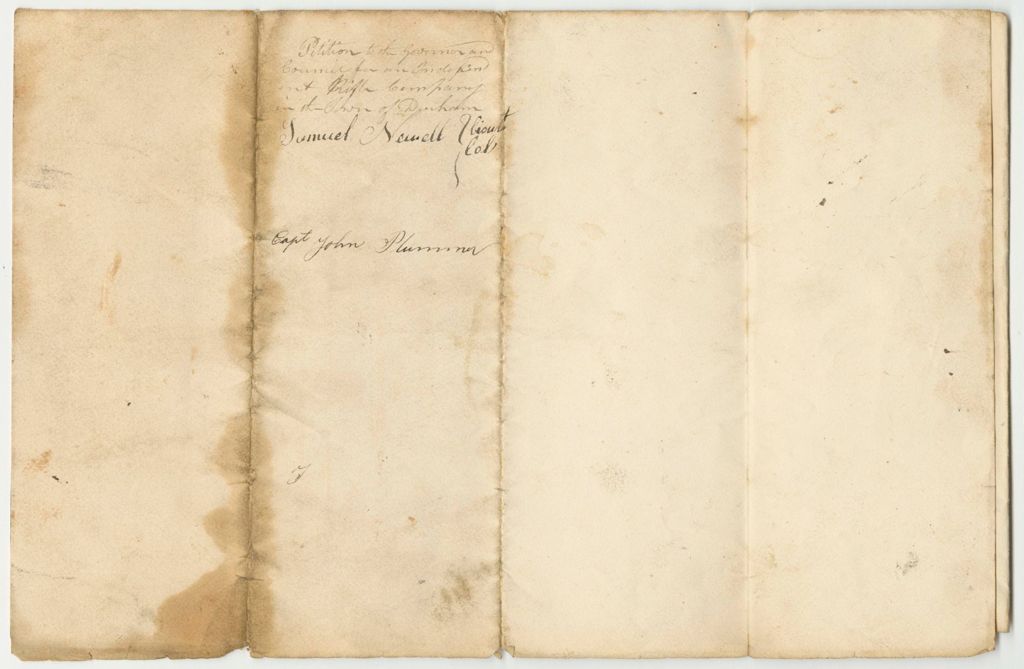 Petition to the Governor and
Council for an Independ
ent Rifle Company
in the Town of Durham
Samuel Newell Lieut
Col
Capt John Plummer